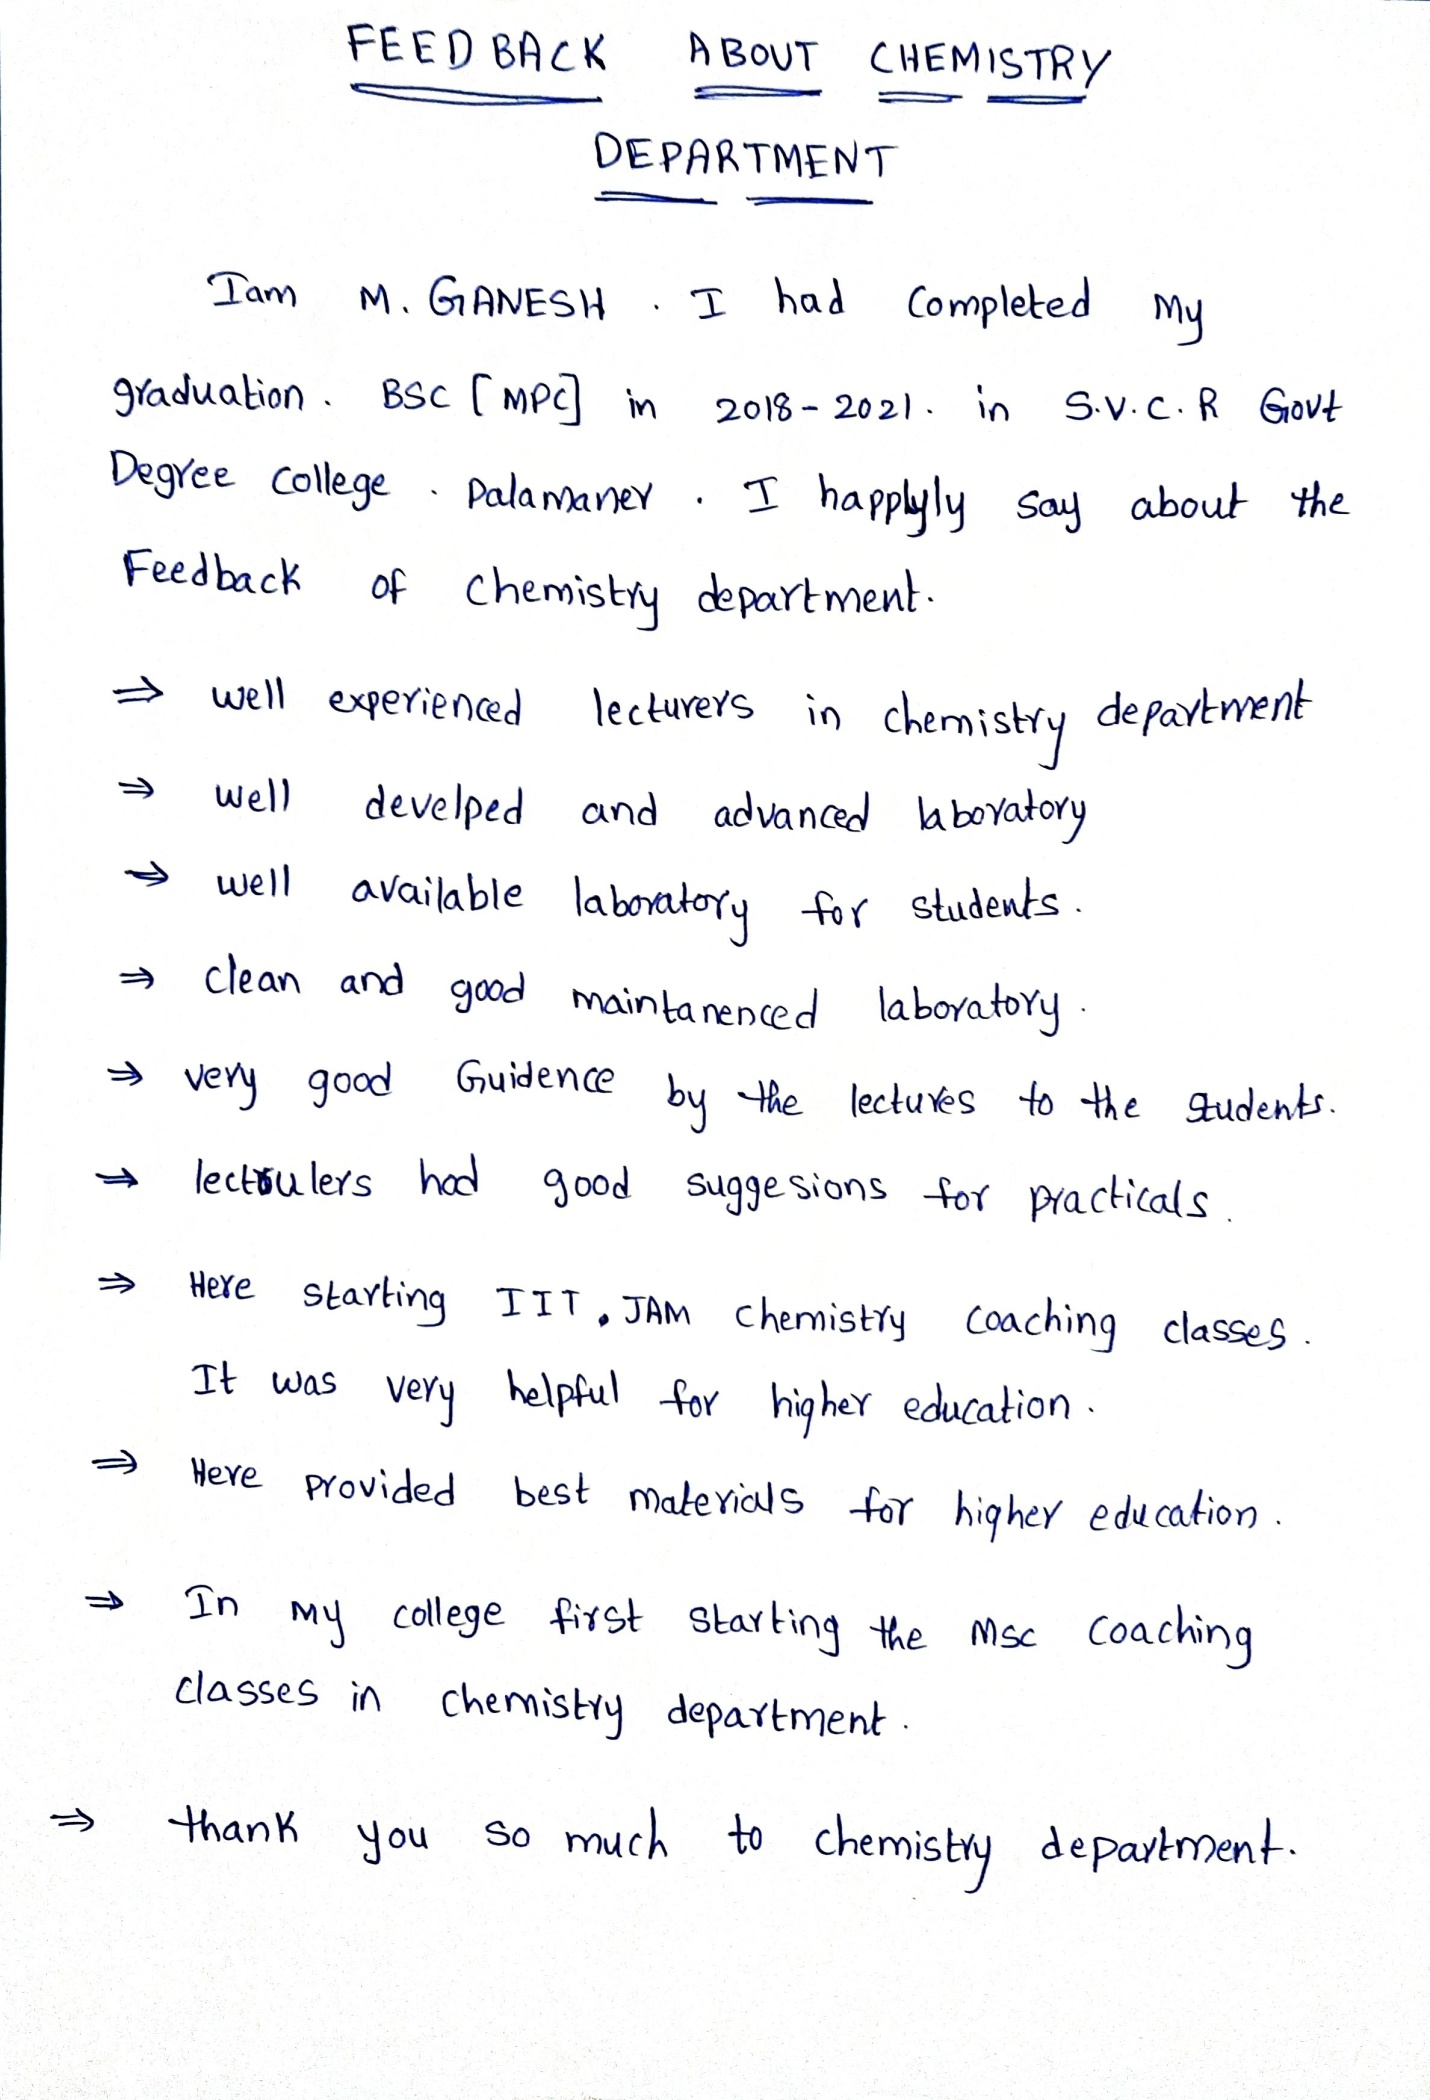 FEED BACK ABOUT CHEMISTRY
DEPARTMENT
Iam M. GANESH . I had Completed My
graduation. BSC [MPC] in 2018-2021. in S.V.C.R Govt
Degree College . Palamaner . I happlyly say about the
Feedback of Chemistry department.
⇒ well experienced lecturers in chemistry department
⇒ well develped and advanced laboratory
⇒ well available laboratory for students.
⇒ Clean and good maintanenced laboratory.
⇒ very good Guidence by the lectures to the students.
⇒ lectoulers had good suggesions for practicals.
⇒ Here starting IIT. JAM Chemistry Coaching classes.
It was very helpful for higher education.
⇒ Here provided best materials for higher education.
⇒ In My college first starting the Msc Coaching
Classes in Chemistry department.
⇒ thank you so much to chemistry department.